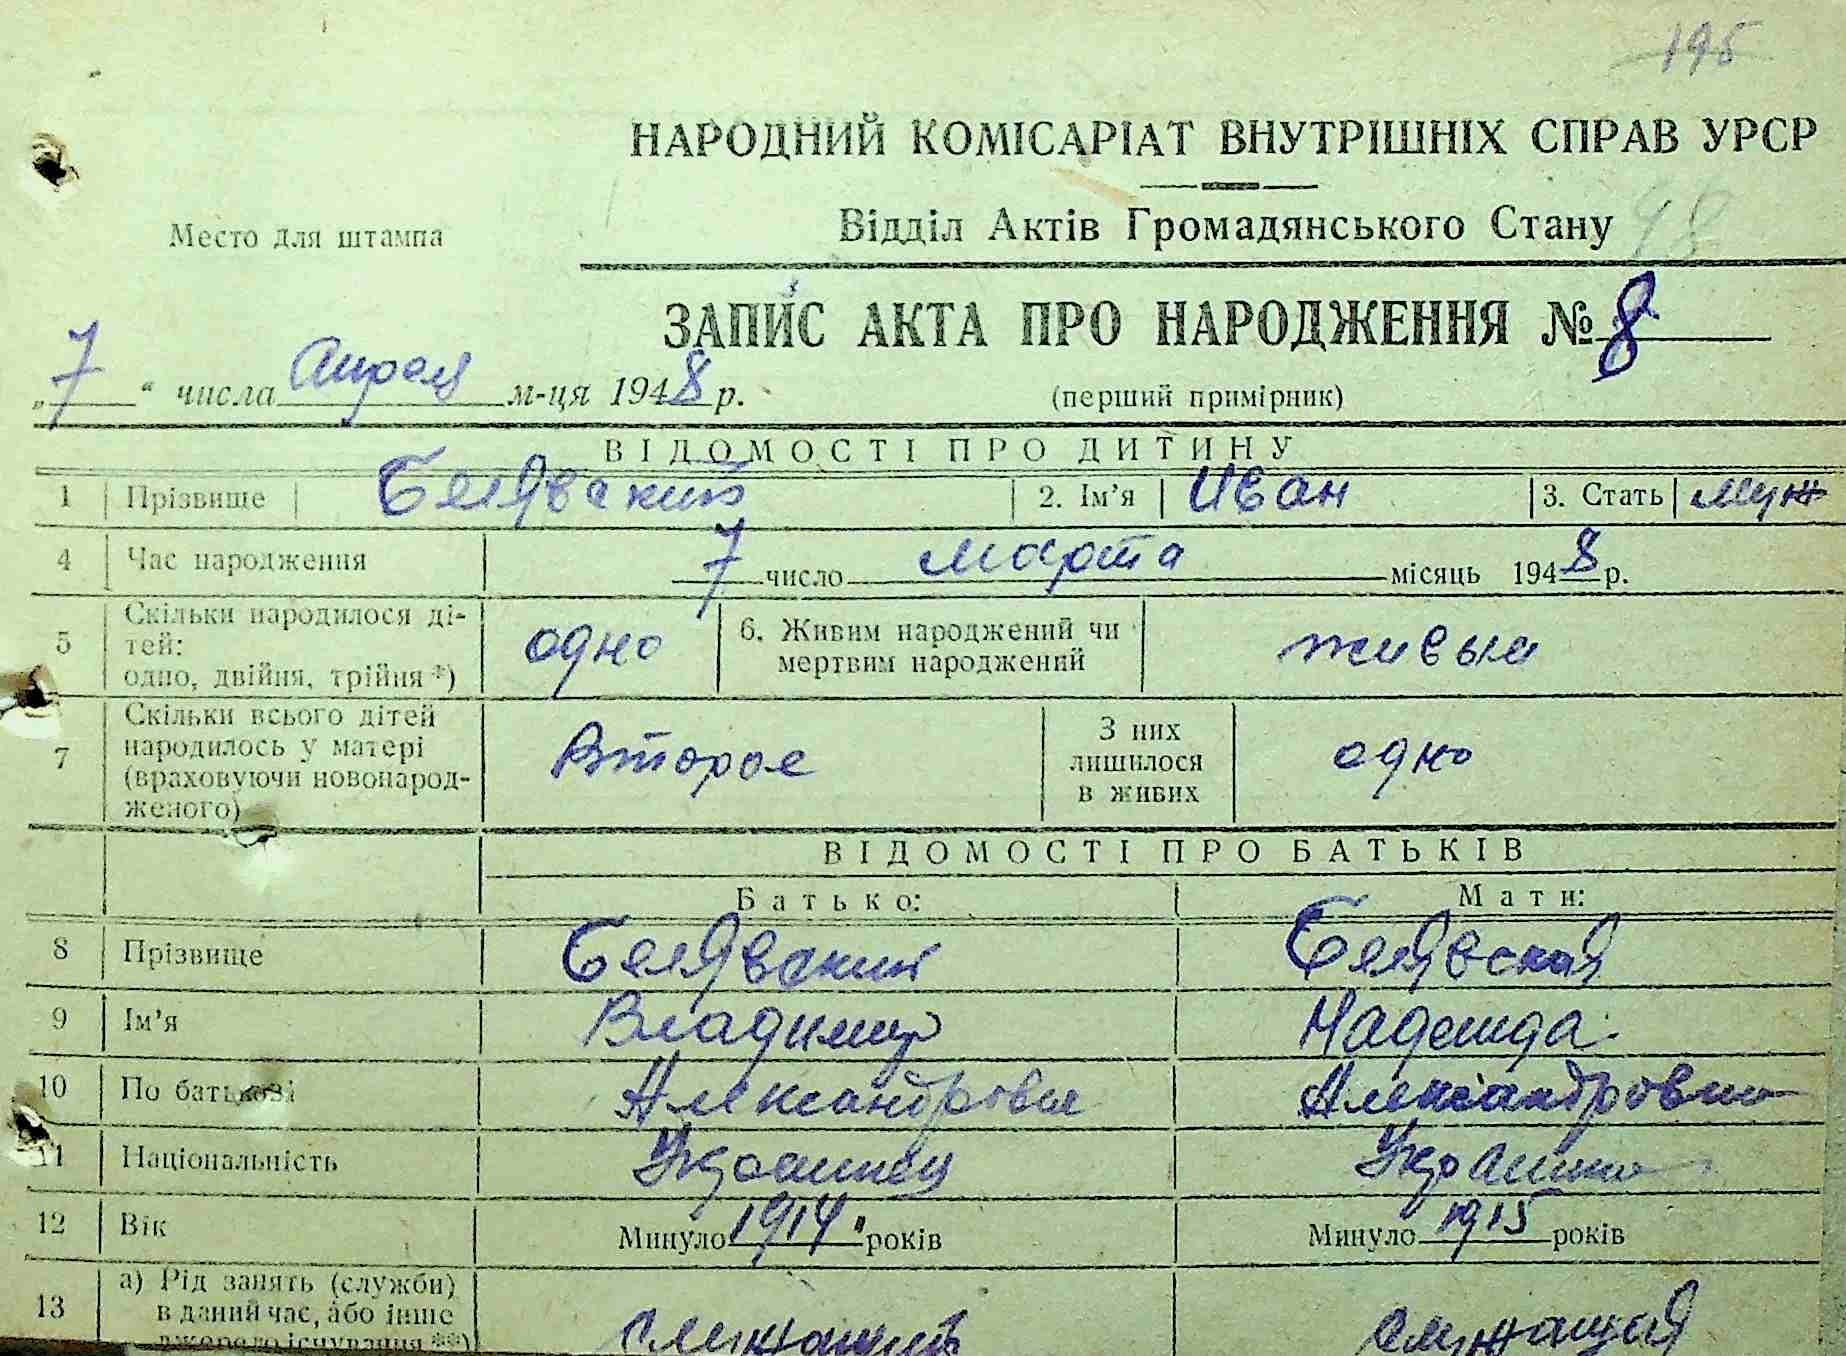 195
НАРОДНИЙ КОМІСАРІАТ ВНУТРІШНІХ СПРАВ УРСР
Место для штампа
Відділ Актів Громадянського Стану 98
ЗАПИС АКТА ПРО НАРОДЖЕННЯ № 8
„7“ числа Апреля м-ця 1948 р.
(перший примірник)
ВІДОМОСТІ ПРО ДИТИНУ
1 Прізвище Белявский 2. Ім'я Иван 3. Стать муж
4 Час народження 7 число марта місяць 1948 р.
5 Скільки народилося ді-
тей:
одно, двійня, трійня *) одно
6. Живим народжений чи
мертвим народжений живым
7 Скільки всього дітей
народилось у матері
(враховуючи новонарод-
женого) Второе
З них
лишилося
в живих одно
ВІДОМОСТІ ПРО БАТЬКІВ
Батько: Мати:
8 Прізвище Белявский Белявская
9 Ім'я Владимир Надежда
10 По батькові Александрович Александровна
11 Національність Украинец Украинка
12 Вік Минуло 1914 років Минуло 1915 років
13 а) Рід занять (служби)
в даний час, або інше
джерело існування **) Служащий Служащая